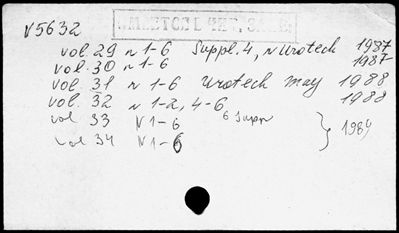 V5632
vol. 29 n 1-6 Suppl. 4, n Urotech 1987
vol. 30 n 1-6 1987
vol. 31 n 1-6 Urotech may 1988
vol. 32 n 1-2, 4-6 1988
vol 33 N 1-6 6 Suppl
vol 34 N 1-6 } 1989